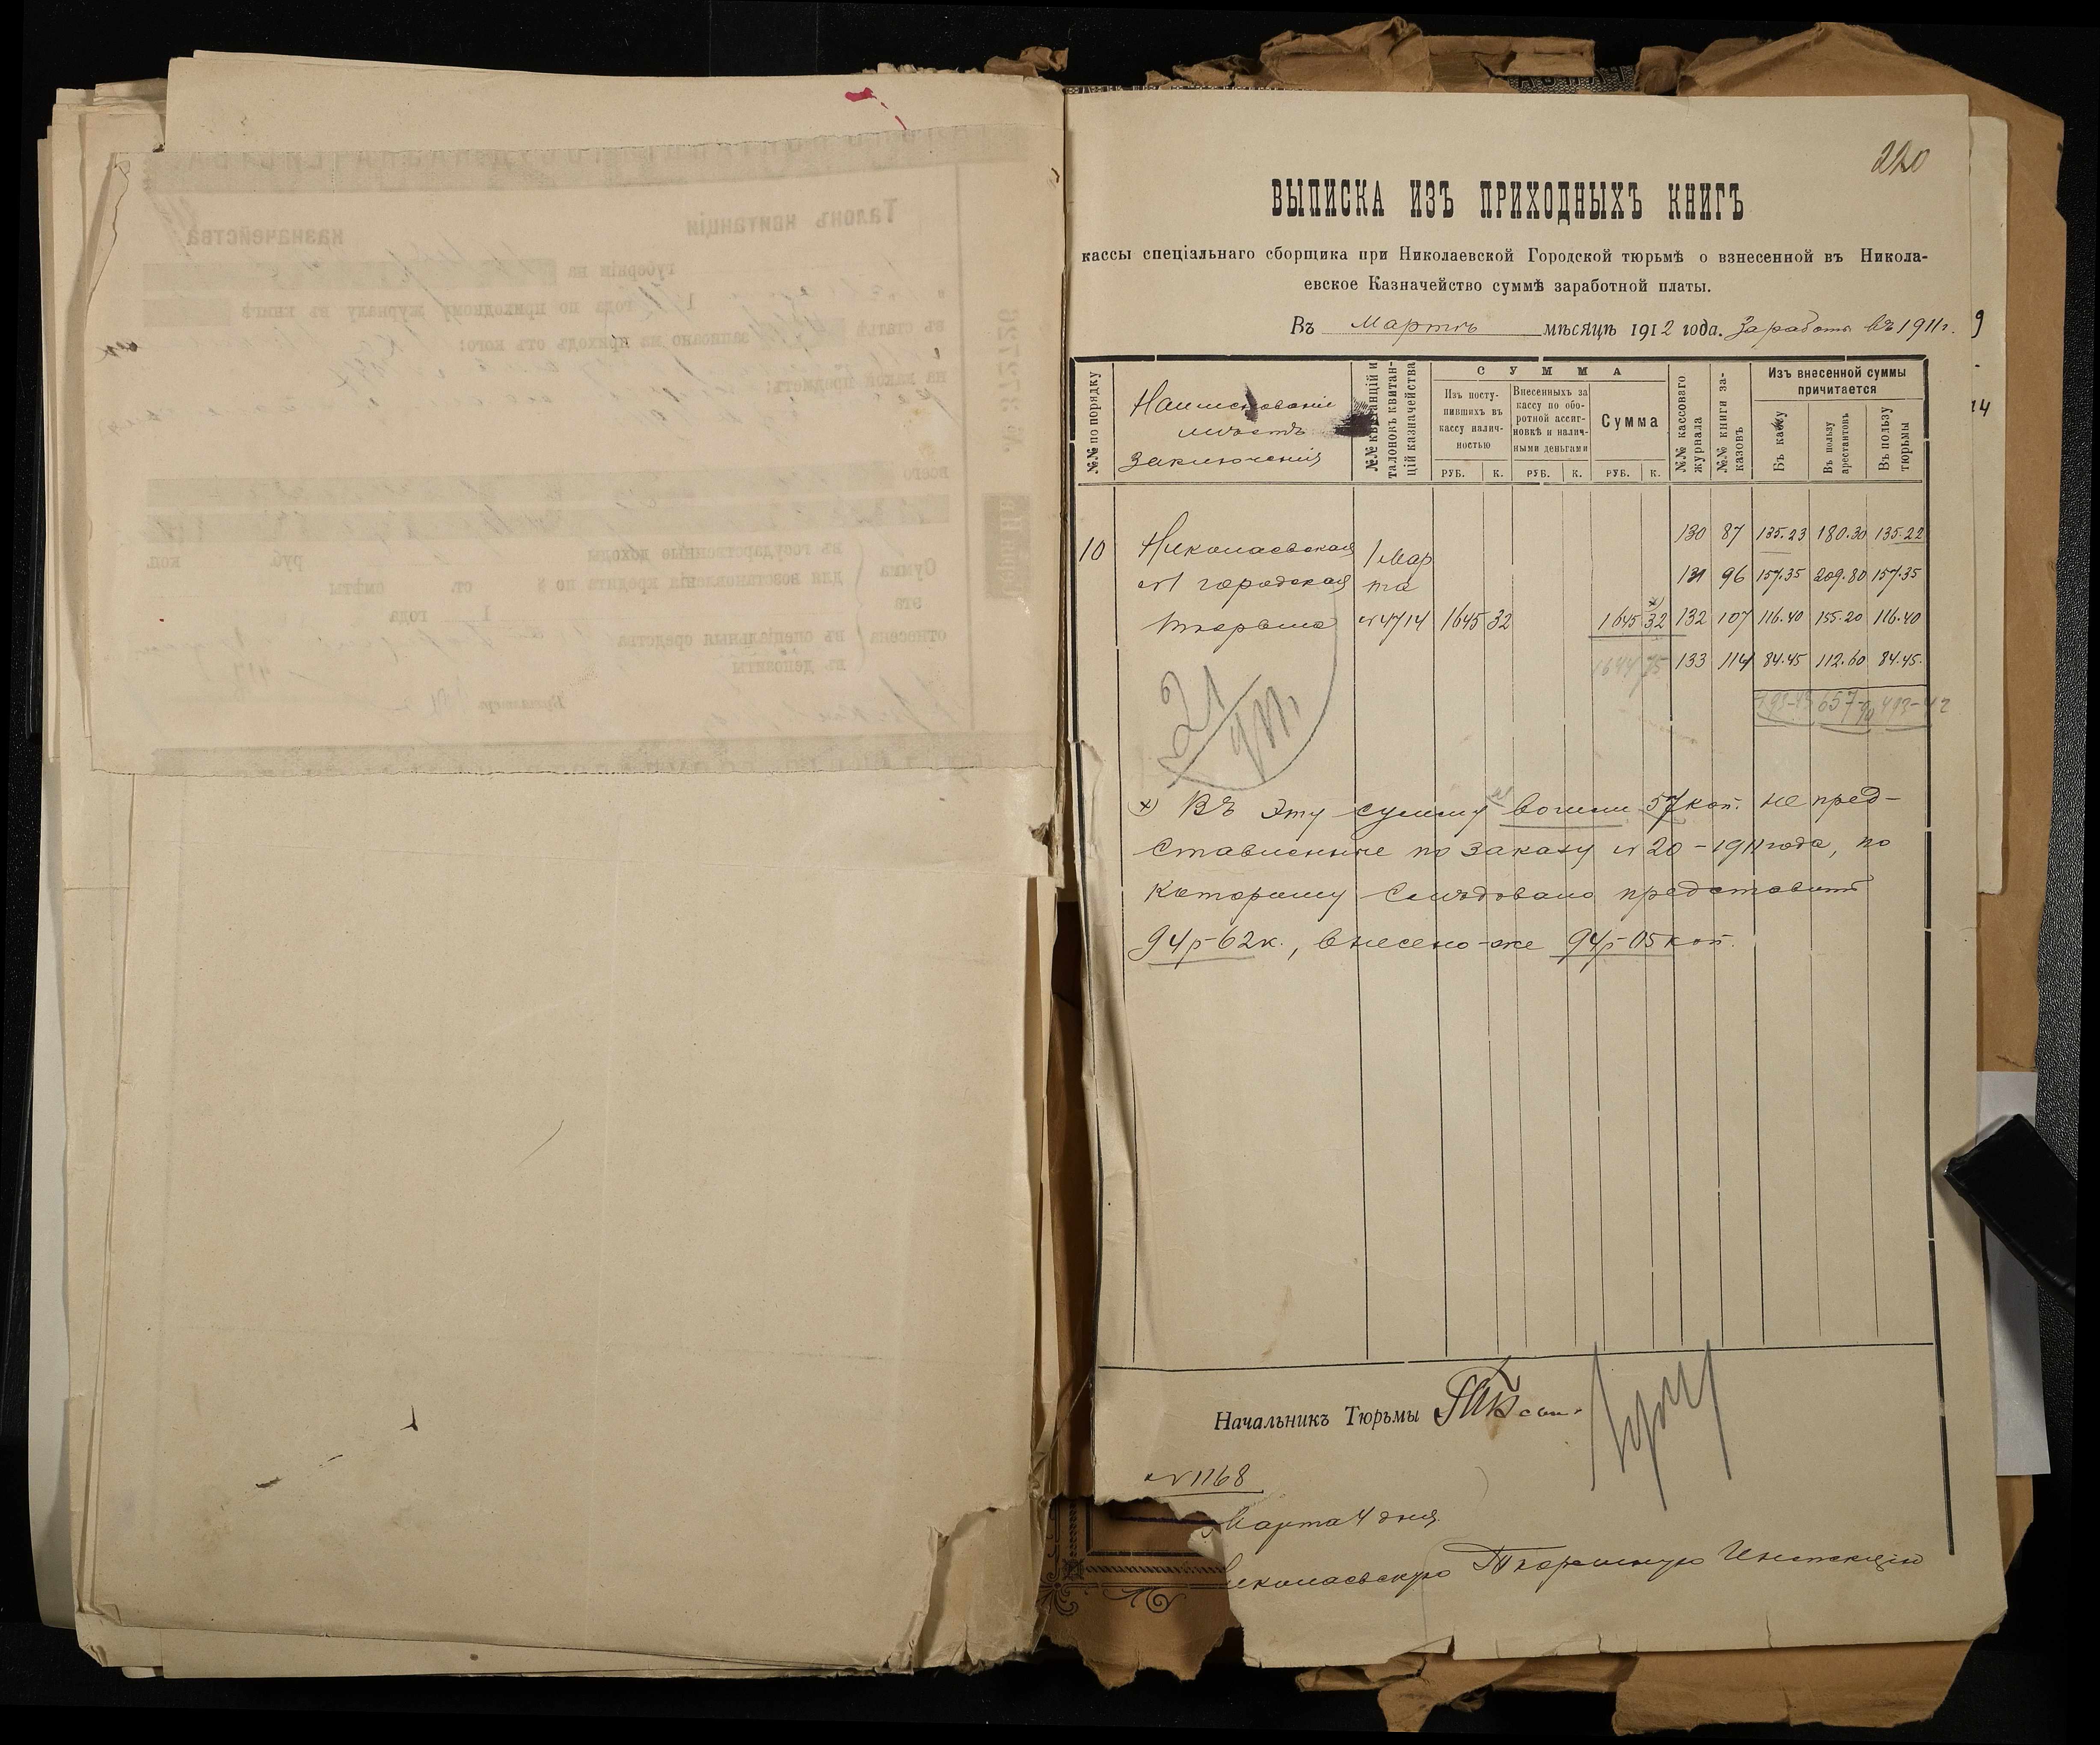 220
ВЫПИСКА ИЗЪ ПРИХОДНЫХЪ КНИГЪ
кассы спеціальнаго сборщика при Николаевской Городской тюрьмѣ о взнесенной въ Никола-
евское Казначейство суммѣ заработной платы.
Въ Мартѣ мѣсяцѣ 1912 года. Заработъ въ 1911 г.
№№ по порядку
Наименованіе
мѣстъ
заключенія
№№ квитанцій и
талоновъ квитан-
цій казначейства
СУММА
Изъ посту-
пившихъ въ
кассу налич-
ностью
Внесенныхъ за
кассу по обо-
ротной ассиг-
новкѣ и налич-
ными деньгами
Сумма
РУБ. К. РУБ. К. РУБ. К.
№№ кассоваго
журнала
№№ книги за-
казовъ
Изъ внесенной суммы
причитается
Въ казну
Въ пользу
арестантовъ
Въ пользу
тюрьмы
130 87 135.23 180.30 135.22
10 Николаевская 1 Мар
№1 городская та 131 96 157.35 209.80 157.35
тюрьма №4714 1645 32 1645 32 x) 132 107 116.40 155.20 116.40
1644 75 133 114 84.45 112.60 84.45.
493-43 657-90 493-42
21
x) Въ эту сумму вошли 57 коп. не пред-
ставленные по заказу №20-1911 года, по
которому слѣдовало представить
94р-62к., внесено-же 94р-05 коп.
Начальникъ Тюрьмы
№1168
Марта 4 дня.
иколаевскую Тюремную Инспекцію
9
14
Талонъ квитанціи
казначейства
губерніи на
1912 года по приходному журналу въ книгѣ
въ статьѣ записано на приходъ отъ кого:
на какой предметъ:
№ 372726
всего
Сумма
эта
отнесена
въ государственные доходы руб. коп.
для возстановленія кредита по § ст. смѣты
1 года
въ спеціальныя средства
въ депозиты